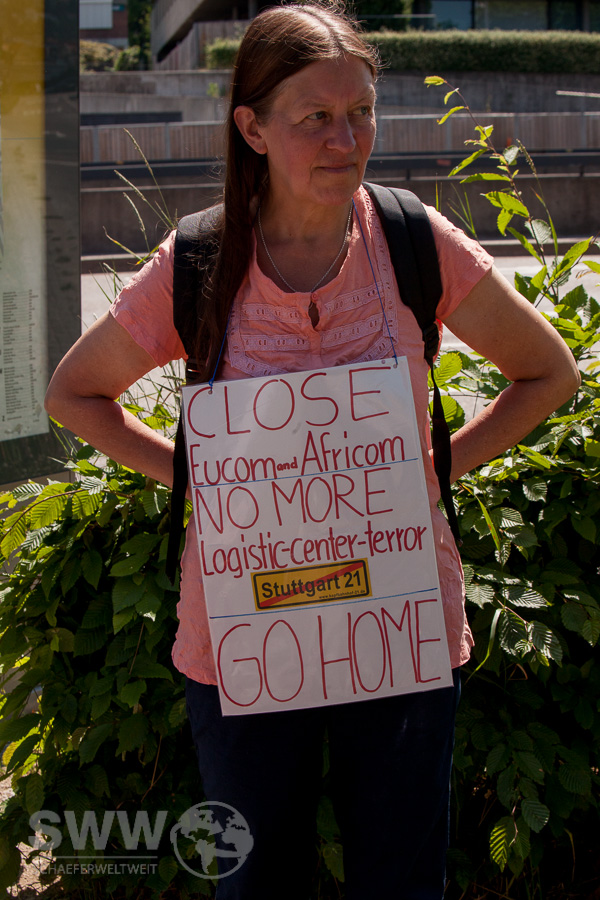 CLOSE
Eucom and Africom
NO MORE
Logistic-center-terror
Stuttgart 21
GO HOME
SWW